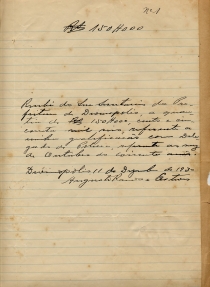 N. 1
Rs 150$000
Recebi do Snr Secretario da Pre-
feitura de Divinopolis, a quan-
tia de Rs 150$000, cento e cin-
coenta mil reis, referente a
minha gratificação como Dele-
gado de Policia, referente ao mez
de Outubro do corrente anno.
Divinopolis 11 de de 193
Augusto